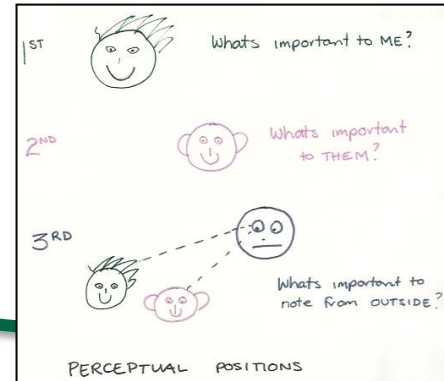 1ST
Whats important to ME?
2ND
Whats important
to THEM?
3RD
Whats important to
note from OUTSIDE?
PERCEPTUAL POSITIONS